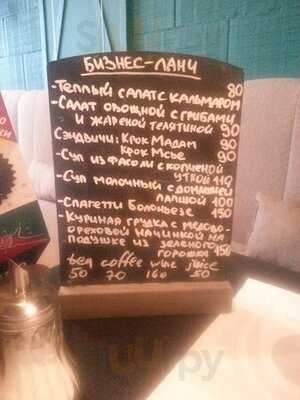 БИЗНЕС-ЛАНЧ
-ТЕПЛЫЙ САЛАТ С КАЛЬМАРОМ 80
-САЛАТ ОВОЩНОЙ С ГРИБАМИ
И ЖАРЕНОЙ ТЕЛЯТИНОЙ 90
СЭНДВИЧИ: КРОК МАДАМ 90
КРОК МСЬЕ 90
-СУП ИЗ ФАСОЛИ С КОПЧЕНОЙ
УТКОЙ 140
-СУП МОЛОЧНЫЙ С ДОМАШНЕЙ
ЛАПШОЙ 100
-СПАГЕТТИ БОЛОНЬЕЗЕ 150
-КУРИНАЯ ГРУДКА С МЕДОВО-
ОРЕХОВОЙ НАЧИНКОЙ НА
ПОДУШКЕ ИЗ ЗЕЛЕНОГО
ГОРОШКА 150
tea coffee wine juice
50 70 160 50